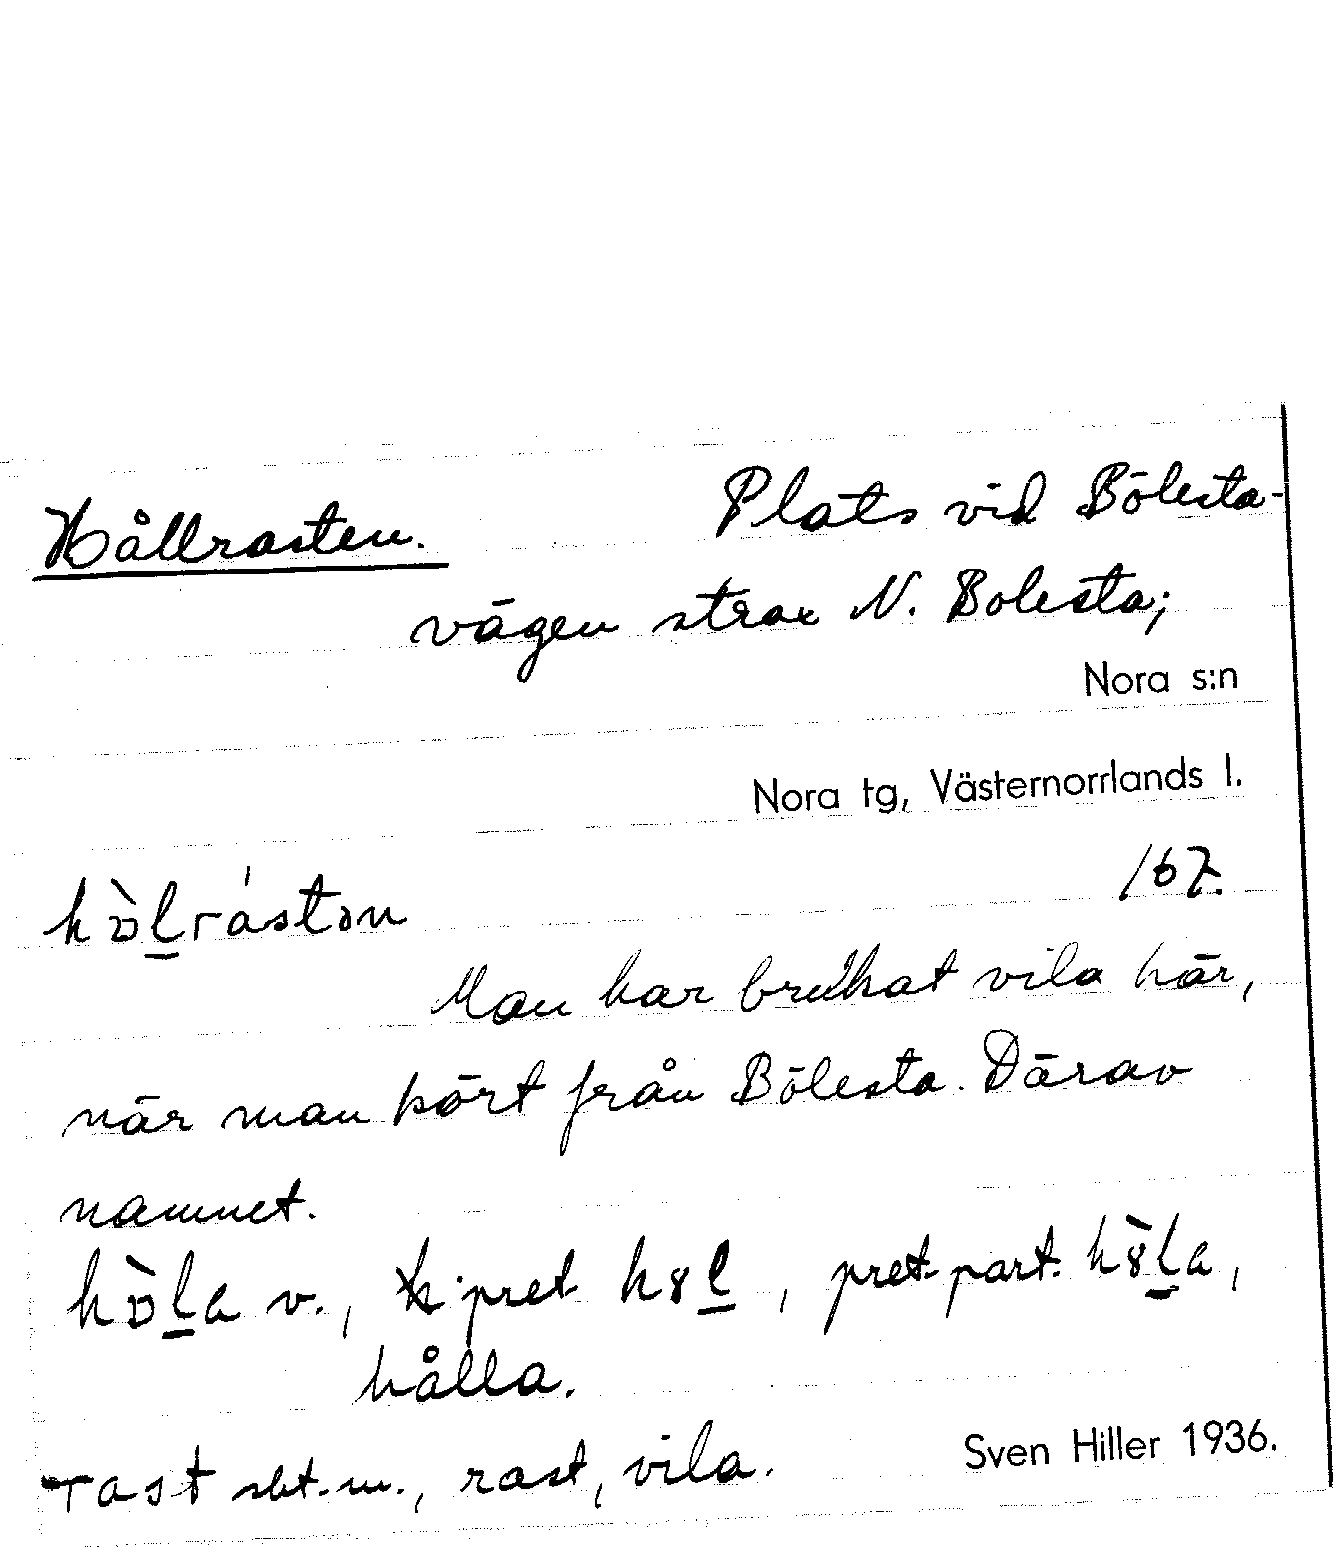 Hållrasten. Plats vid Bölesta-
vägen strax N. Bolesta;
Nora s:n
Nora tg, Västernorrlands l.
167.
hòl̲rástən
Man har brukat vila här,
när man kört från Bölesta. Därav
namnet.
hòl̲a v., pret. h8l̲, pret. part. h8̀l̲a,
hålla.
rast sbt. m., rast, vila.
Sven Hiller 1936.